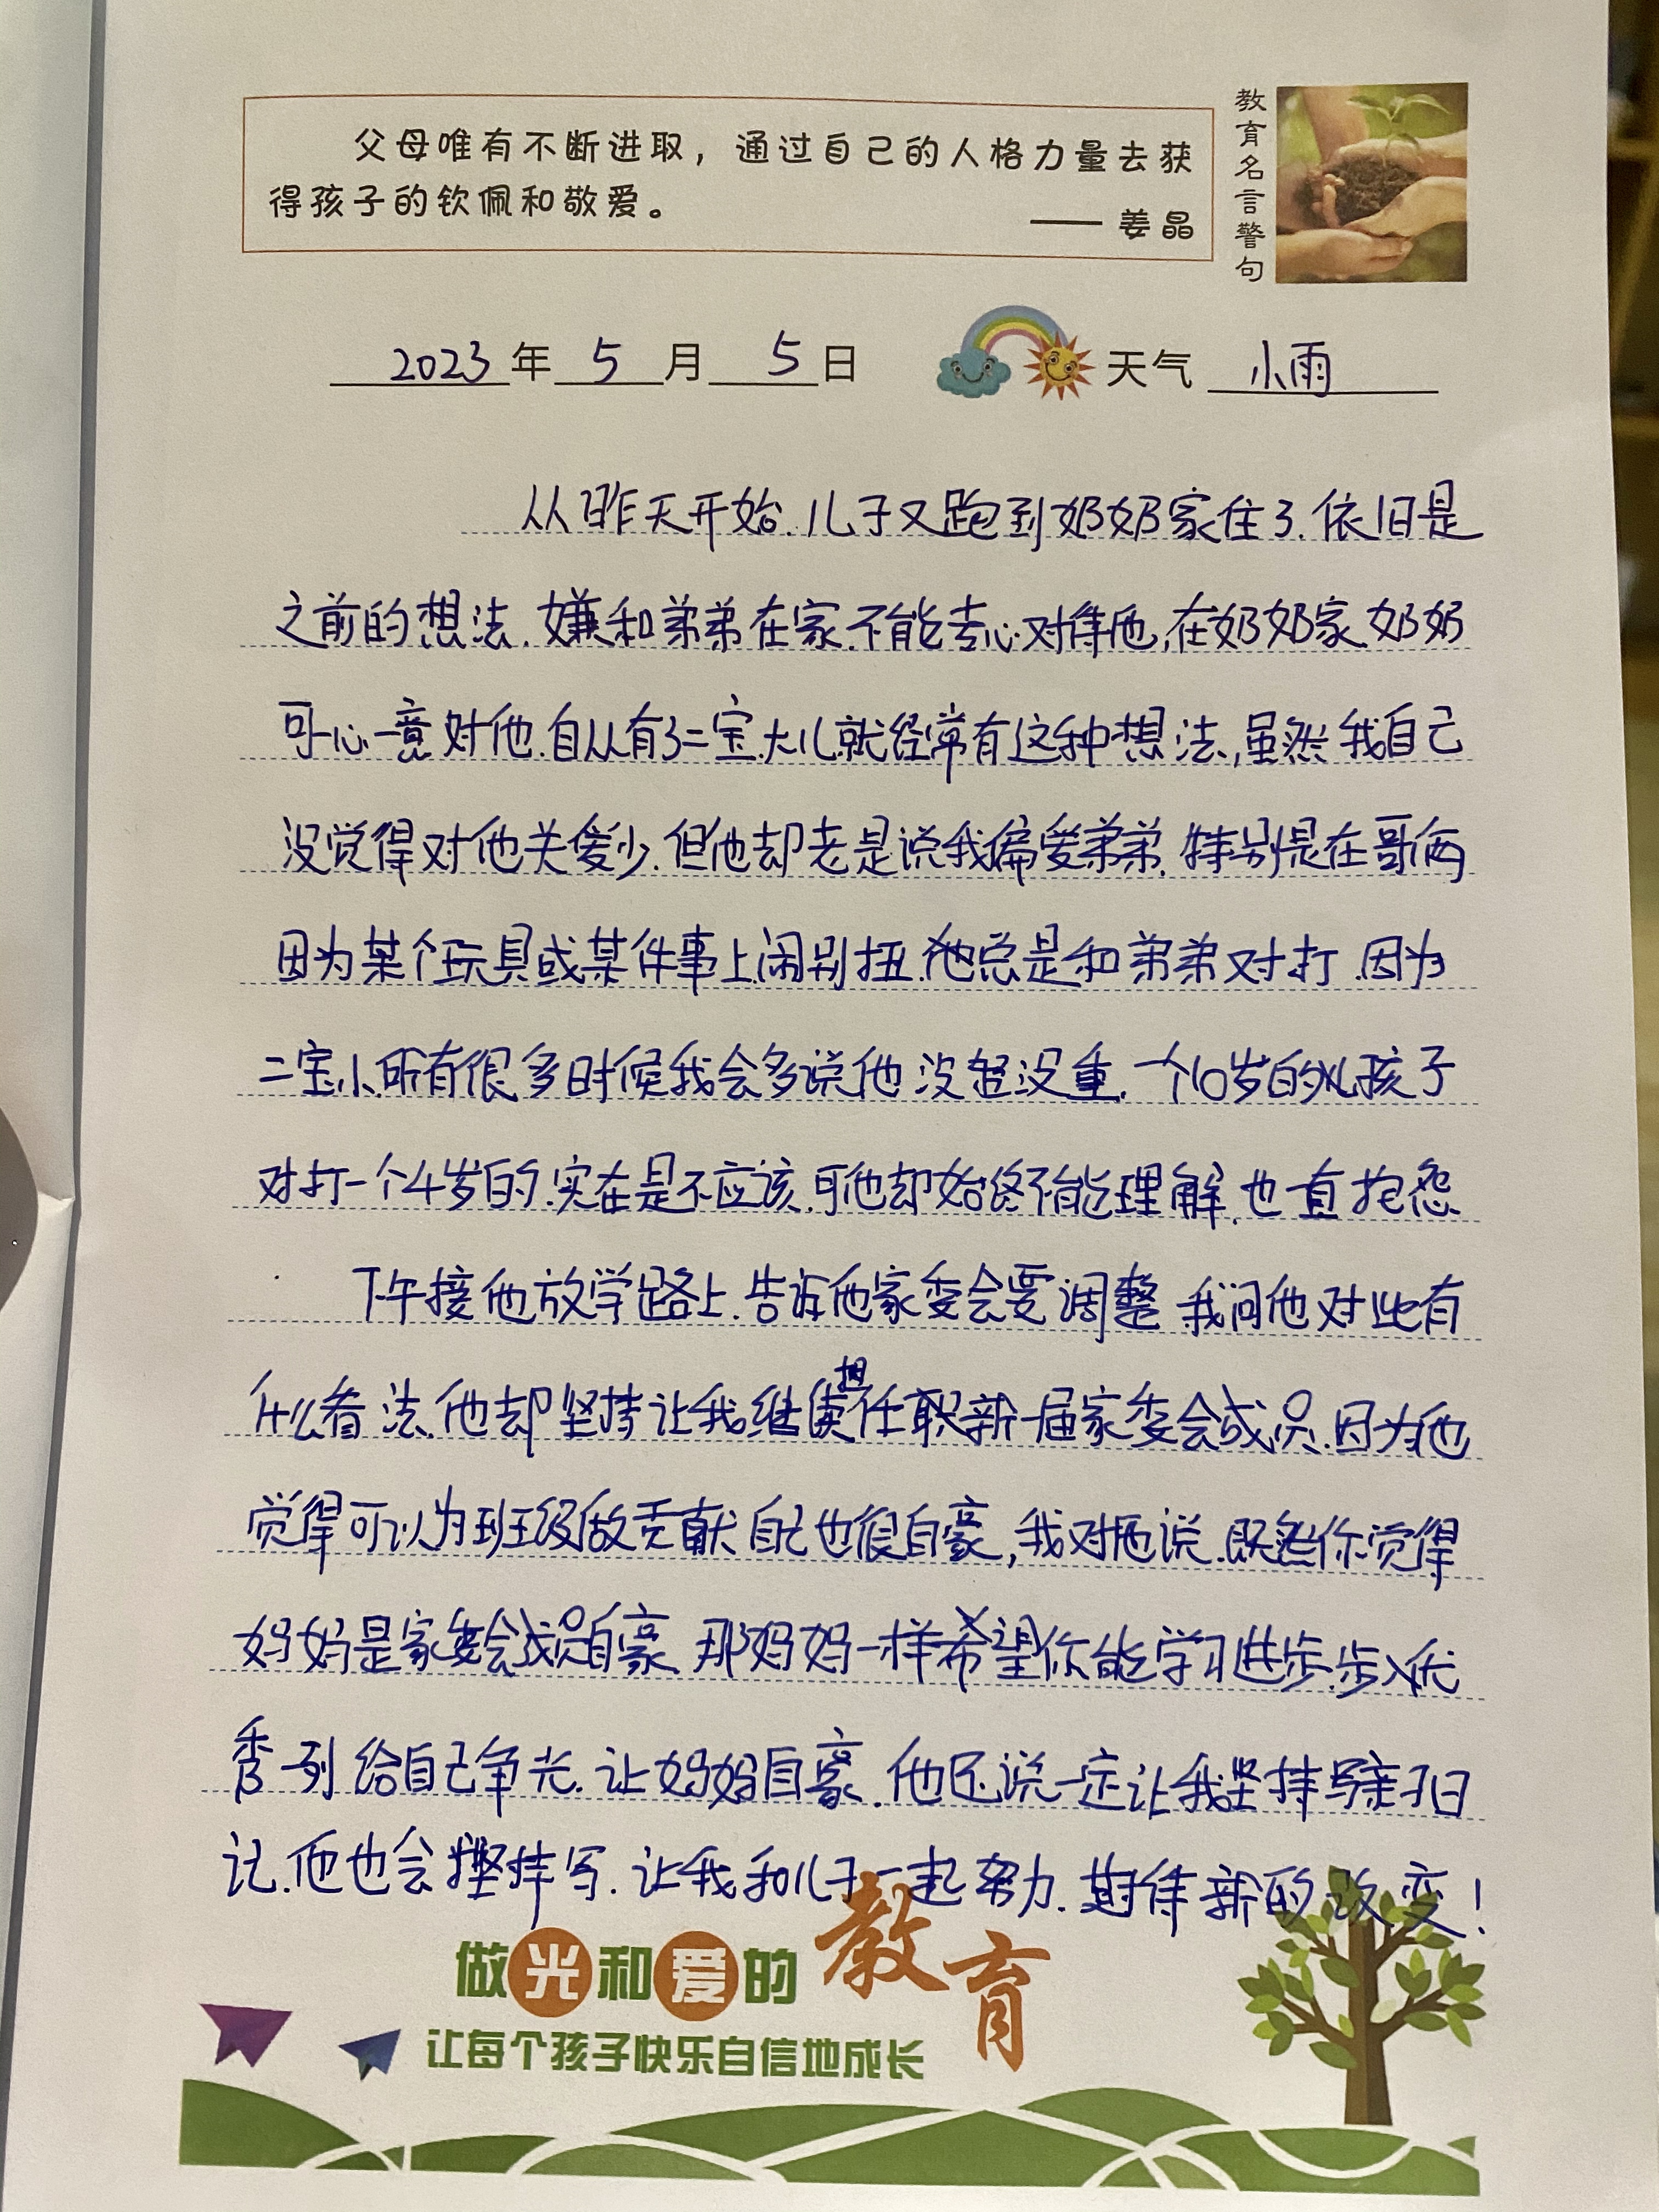 父母唯有不断进取，通过自己的人格力量去获
得孩子的钦佩和敬爱。
—— 姜晶
教育名言警句
2023年5月5日 天气 小雨
从昨天开始.儿子又跑到奶奶家住了.依旧是
之前的想法.嫌和弟弟在家.不能专心对待他,在奶奶家.奶奶
可心一意对他.自从有了二宝.大儿就经常有这种想法,虽然我自己
没觉得对他关爱少.但他却老是说我偏爱弟弟.特别是在哥俩
因为某个玩具或某件事上闹别扭.他总是和弟弟对打.因为
二宝小.所有很多时候我会多说他没轻没重.一个10岁的孩子
对打一个4岁的.实在是不应该.可他却始终不能理解.也直抱怨
下午接他放学路上.告诉他家委会要调整.我问他对此有
什么看法.他却坚持让我继续担任职新一届家委会成员.因为他
觉得可以为班级做贡献.自己也很自豪,我对他说.既然你觉得
妈妈是家委会成员自豪.那妈妈一样希望你能学习进步.步入优
秀一列.给自己争光.让妈妈自豪.他还说一定让我坚持写亲子日
记.他也会坚持写.让我和儿子一起努力.期待新的改变!
做光和爱的教育
让每个孩子快乐自信地成长